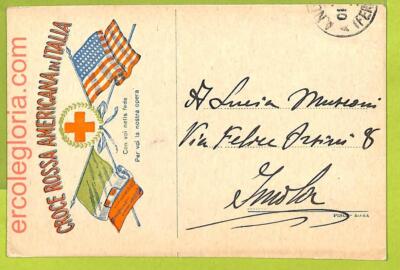 ercolegloria.com
CROCE ROSSA AMERICANA IN ITALIA
Con voi nella fede
Per voi la nostra opera
A Lucia
Via Felice Orsini 8
Imola